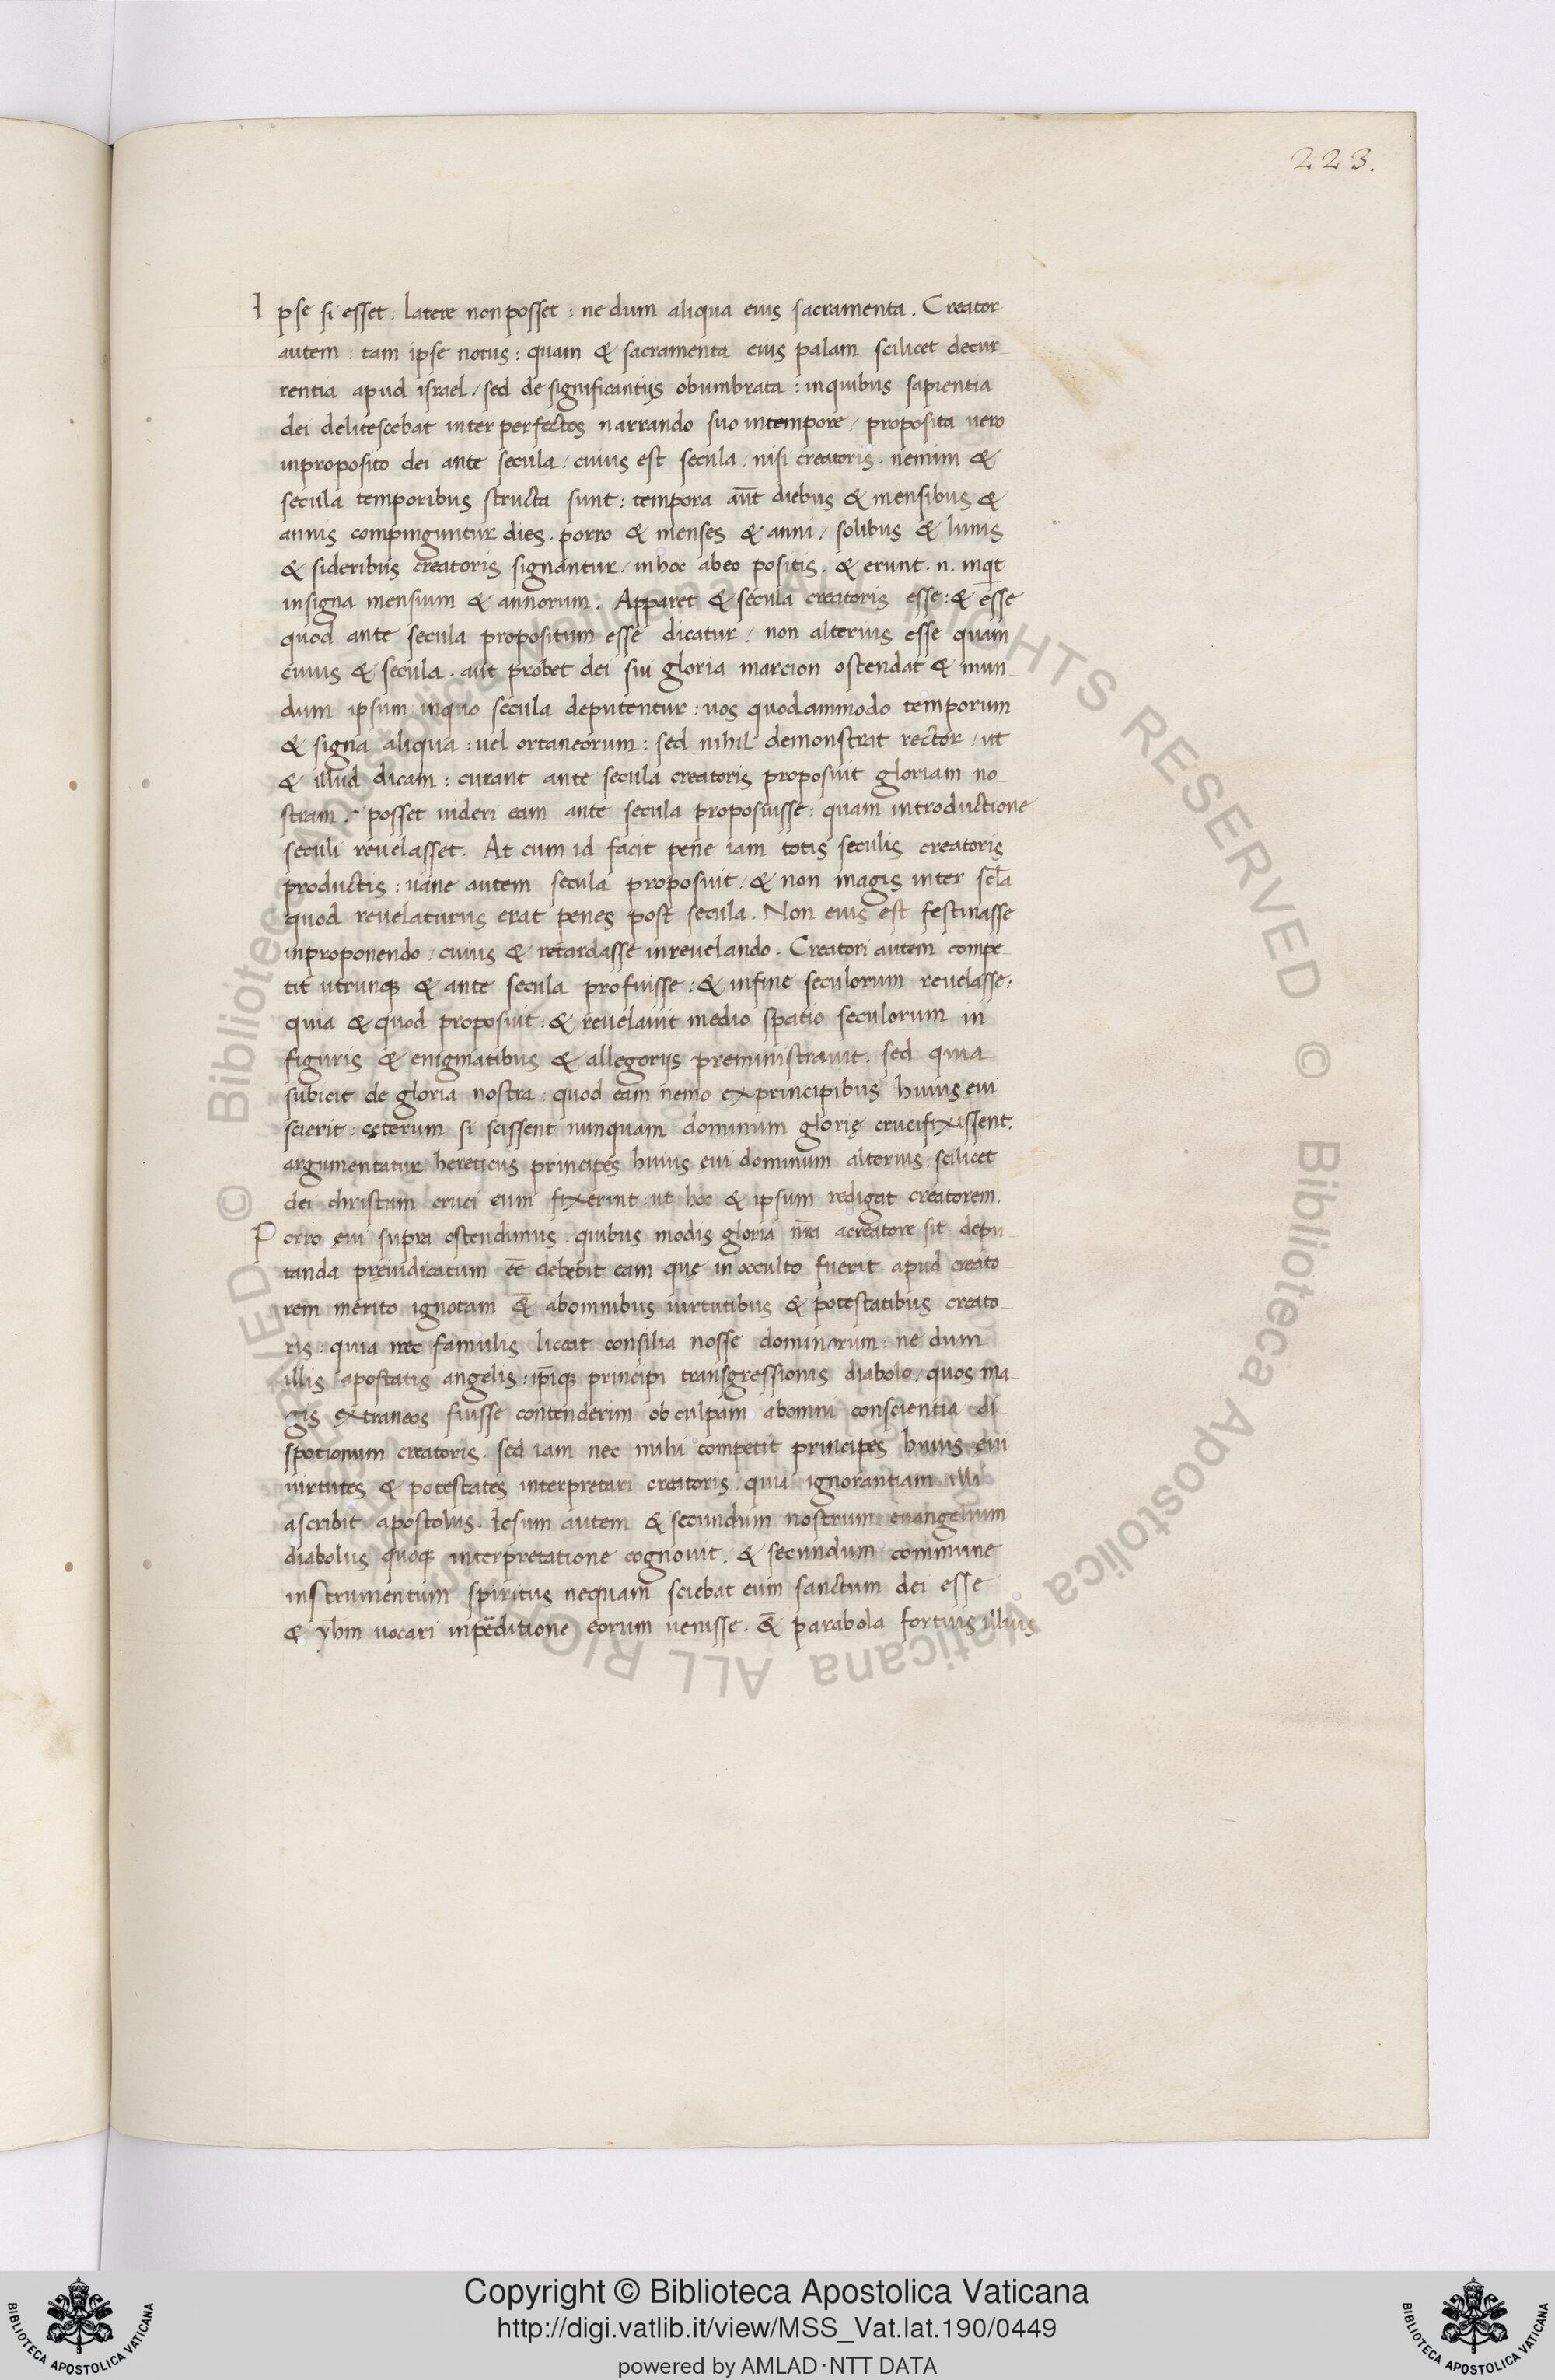 223.
Ipse si esset : latere non posset : ne dum aliqua eius sacramenta . Creator
autem : tam ipse notus : quam & sacramenta eius palam scilicet decur-
rentia apud israel / sed de significantijs obumbrata : inquibus sapientia
dei delitescebat inter perfectos narrando suo intempore / proposita uero
inproposito dei ante secula / cuius est secula / nisi creatoris . nemini &
secula temporibus structa sunt : tempora aūt diebus & mensibus &
annis compinguntur dies . porro & menses & anni / solibus & lunis
& sideribus creatoris signantur / inhoc abeo positis . & erunt . n . inqt
insigna mensium & annorum . Apparet & secula creatoris esse : & esse
quod ante secula propositum esse dicatur / non alterius esse quam
cuius & secula . aut probet dei sui gloria marcion ostendat & mun-
dum ipsum inquo secula deputentur : uos quodammodo temporum
& signa aliqua : uel ortaneorum : sed nihil demonstrat rector / ut
& illud dicam : curant ante secula creatoris proposuit gloriam no-
stram . posset uideri eam ante secula proposuisse : quam introductione
seculi reuelasset . At cum id facit pene iam totis seculis creatoris
productis : uane autem secula proposuit / & non magis inter scl̄a
quod reuelaturus erat penes post secula . Non eius est festinasse
inproponendo / cuius & retardasse inreuelando . Creatori autem compe
tit utrunq; & ante secula profuisse : & infine seculorum reuelasse :
quia & quod proposuit : & reuelauit medio spatio seculorum in
figuris & enigmatibus & allegorijs preministrauit . sed quia
subicit de gloria nostra : quod eam nemo exprincipibus huius eui
scierit : cęterum si scissent nunquam dominum glorię crucifixissent .
argumentatur hereticus principes huius eui dominum alterius : scilicet
dei christum cruci eum fixerint : ut hoc & ipsum redigat creatorem .
Porro cui supra ostendimus . quibus modis gloria nr̄a acreatore sit depu-
tanda pręiudicatum eē debebit eam quę in occulto fuerit apud creato-
rem merito ignotam &̄ abomnibus uirtutibus & potestatibus creato-
ris : quia nec famulis liceat consilia nosse dominorum : ne dum
illis apostatis angelis : ip̄iq; principi transgressionis diabolo . quos ma-
gis extraneos fuisse contenderim ob culpam abomni conscientia di-
spotionum creatoris . sed iam nec mihi competit principes huius eui
uirtutes & potestates interpretari creatoris : quia ignorantiam illi
ascribit apostolus . Iesum autem & secundum nostrum euangelium
diabolus quoq; interpretatione cognouit . & secundum commune
instrumentum spiritus nequam sciebat eum sanctum dei esse
& yh̄m uocari inp̄ditione eorum uenisse . &̄ parabola fortius illius
Copyright © Biblioteca Apostolica Vaticana
http://digi.vatlib.it/view/MSS_Vat.lat.190/0449
powered by AMLAD·NTT DATA
BIBLIOTECA APOSTOLICA VATICANA
BIBLIOTECA APOSTOLICA VATICANA
© Biblioteca Apostolica Vaticana ALL RIGHTS RESERVED © Biblioteca Apostolica Vaticana ALL RIGHTS RESERVED